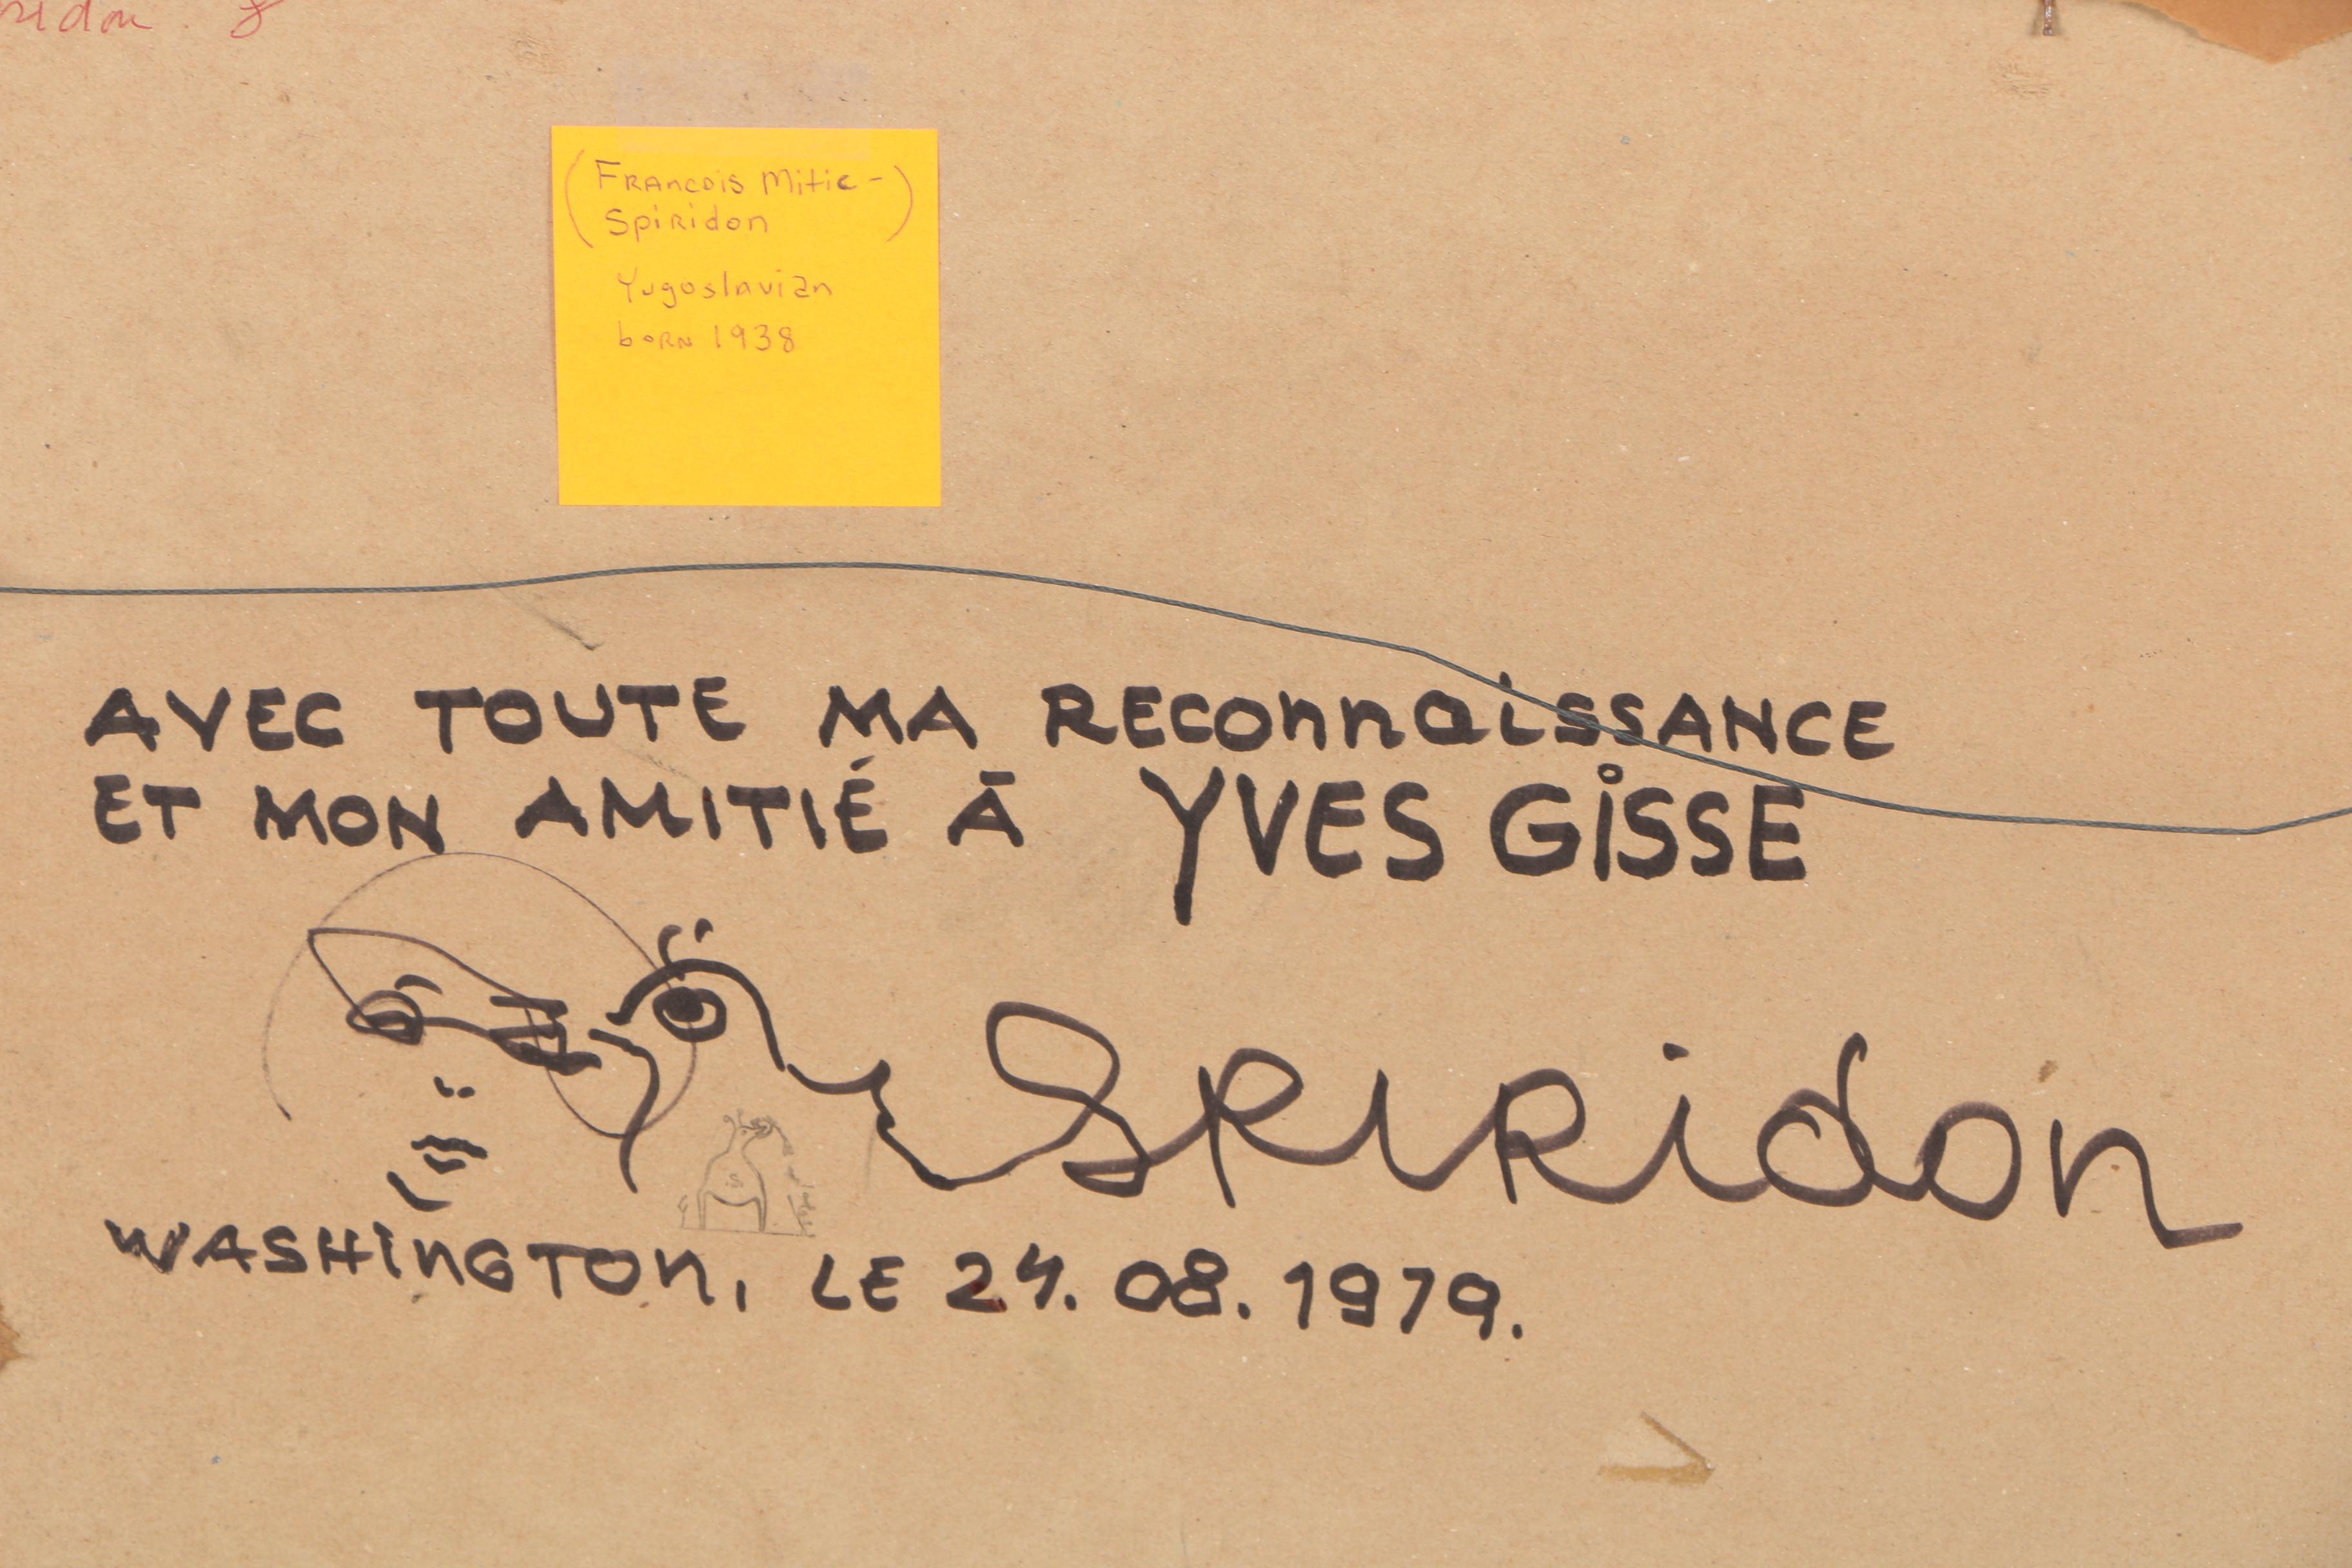 (Francois Mitic-)
Spiridon
Yugoslavian
born 1938
AVEC TOUTE MA RECONNAISSANCE
ET MON AMITIÉ Ā YVES GISSE
SPIRidon
WASHINGTON, LE 24. 08. 1979.